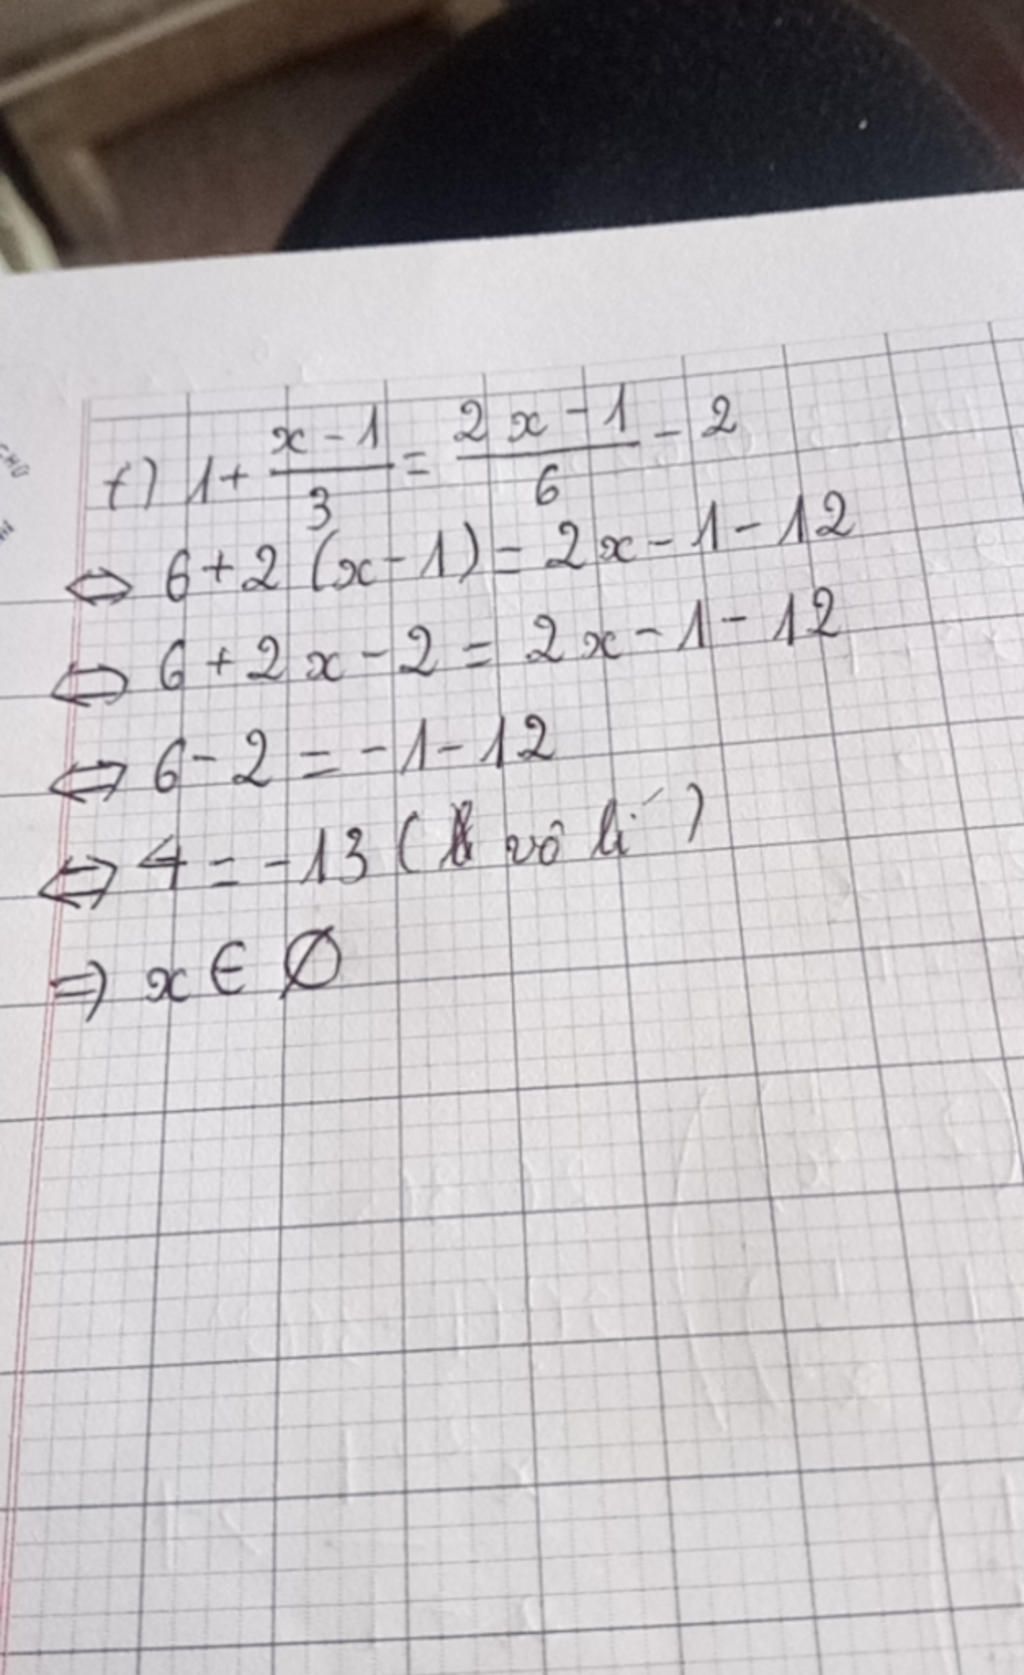 f) 1 + \frac{x - 1}{3} = \frac{2x - 1}{6} - 2
⇔ 6 + 2(x - 1) = 2x - 1 - 12
⇔ 6 + 2x - 2 = 2x - 1 - 12
⇔ 6 - 2 = -1 - 12
⇔ 4 = -13 ( vô lí )
⇒ x ∈ ∅